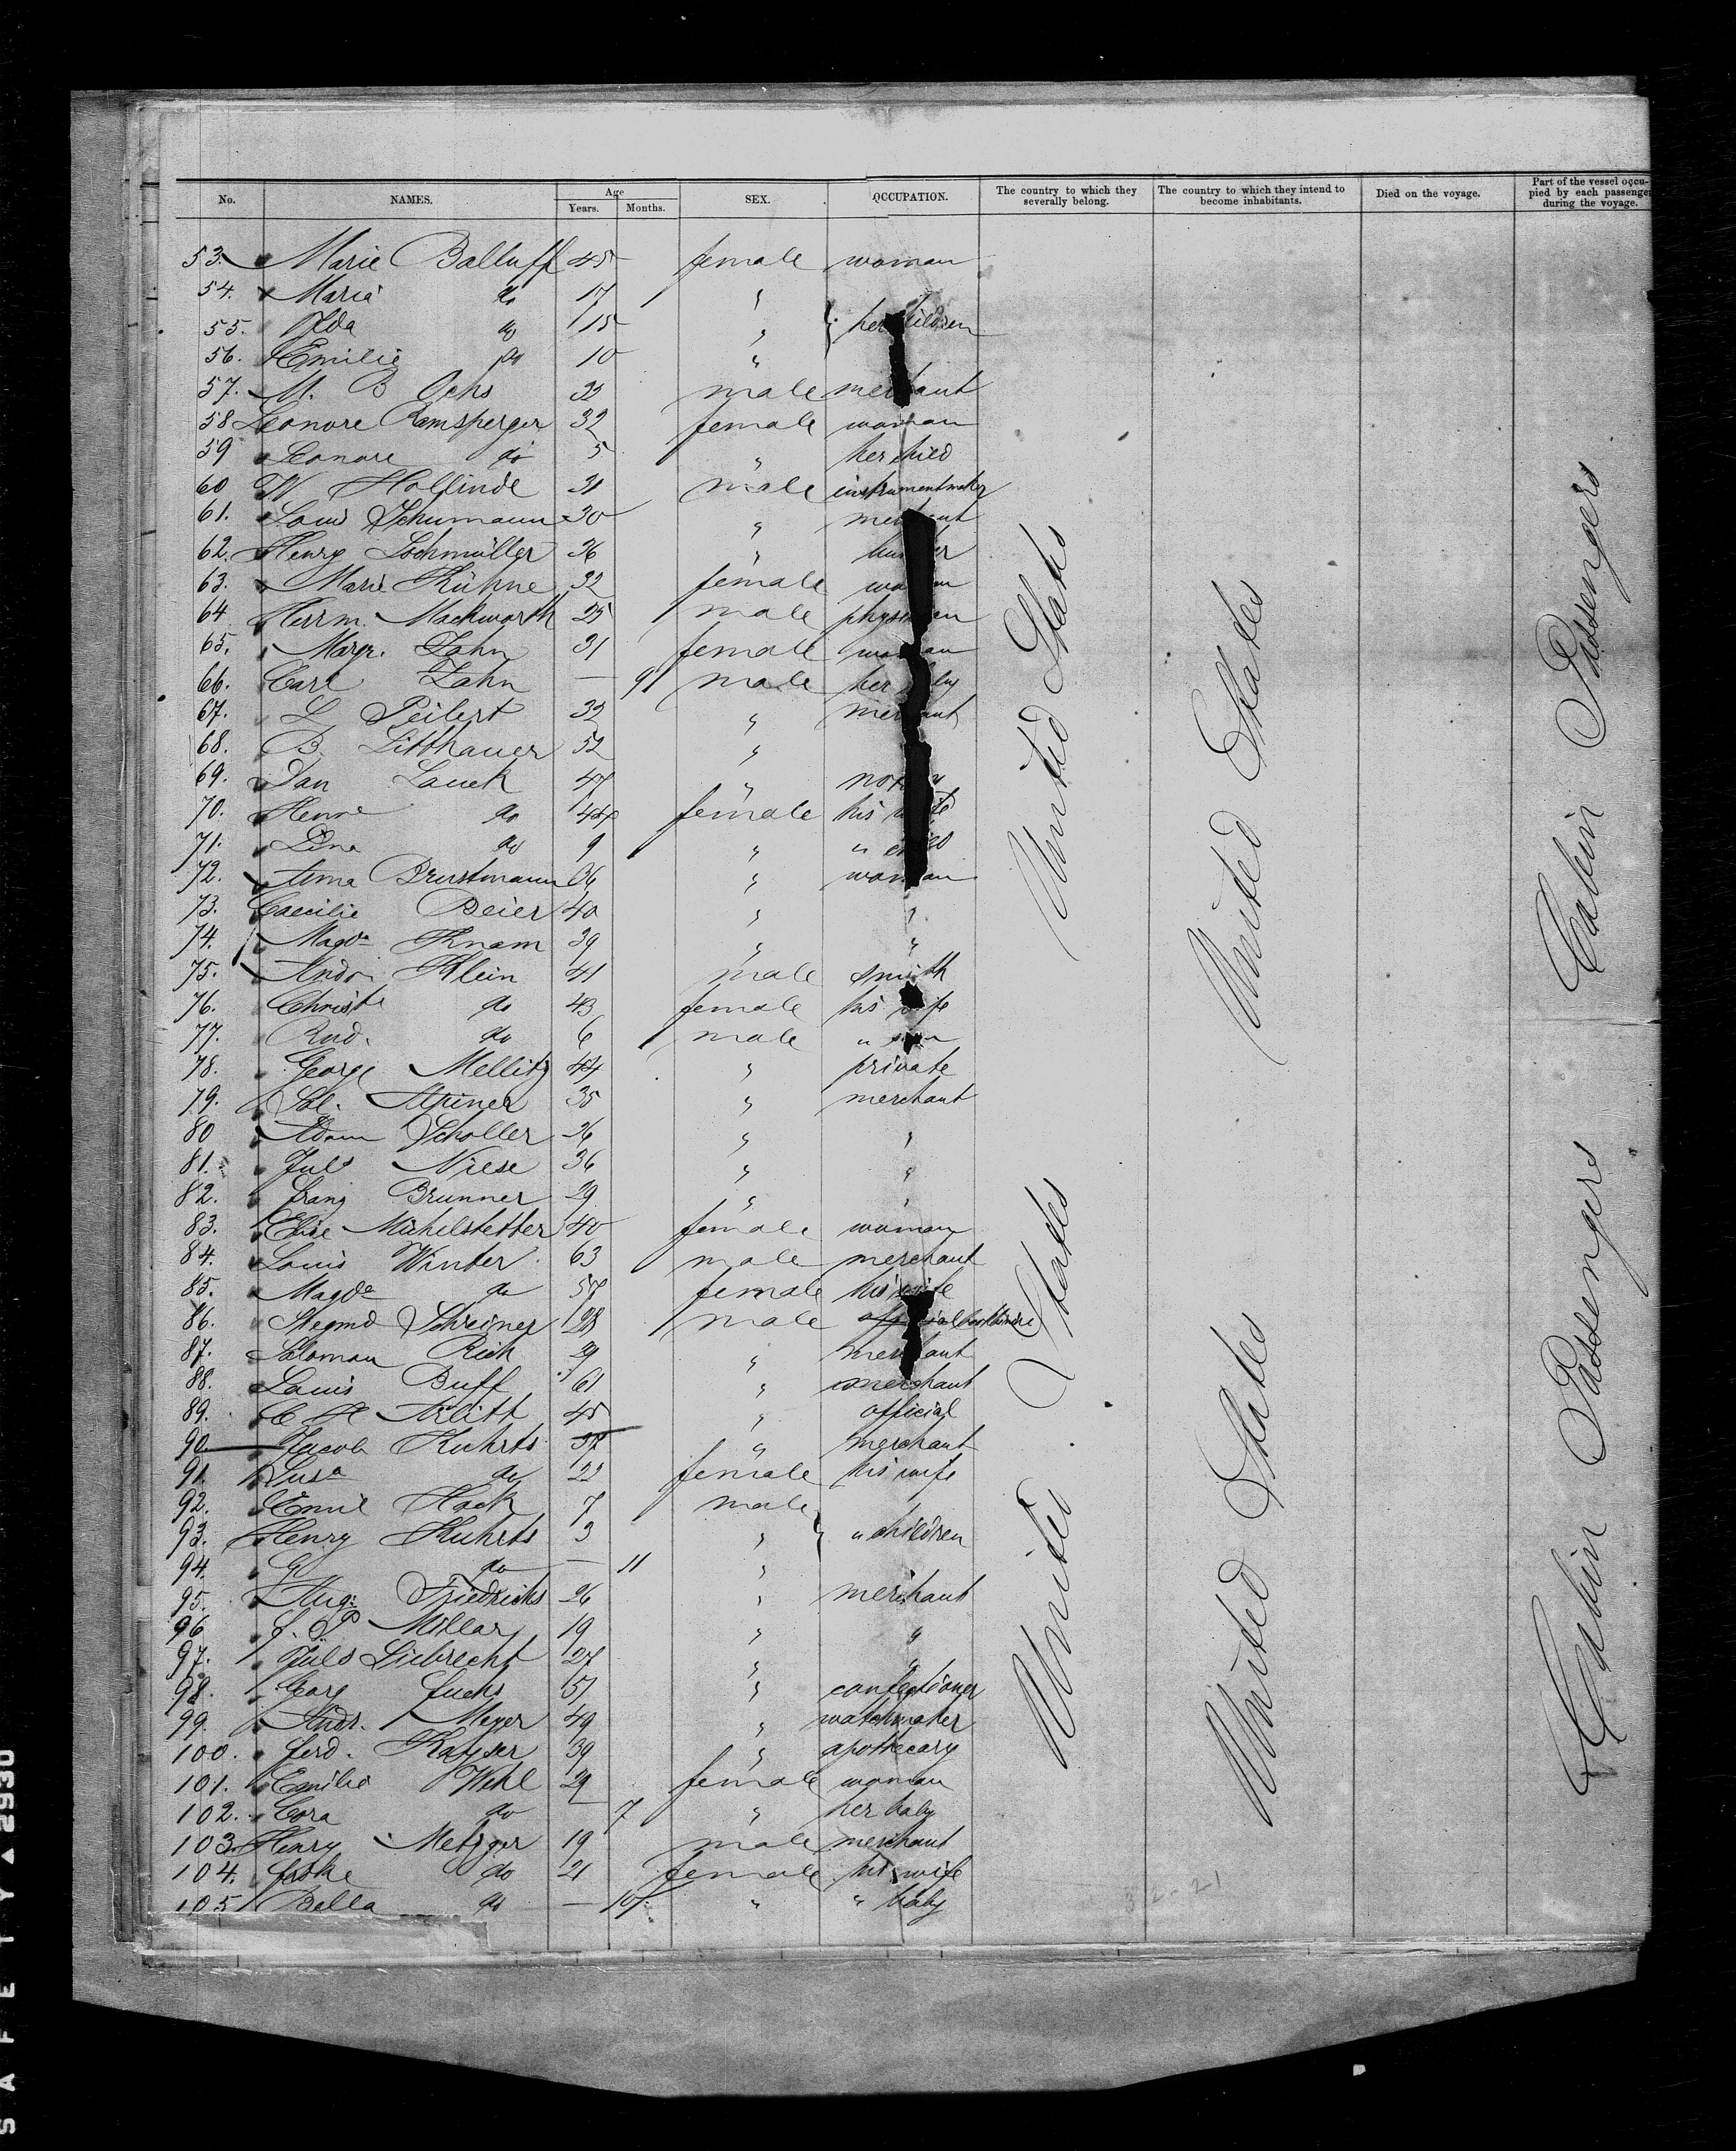 No. NAMES. Age Years. Months. SEX. OCCUPATION. The country to which they severally belong. The country to which they intend to become inhabitants. Died on the voyage. Part of the vessel occupied by each passenger during the voyage.
53. Marie Balluff 45 female woman
54. Maria do 17 "
55. Ida do 15 " her children
56. Emilie do 10 "
57. M. B Ochs 32 male merchant
58 Leonore Ramsperger 32 female woman
59 Leonore do 5 " her child
60 W Hollinde 31 male instrumentmaker
61. Louis Schumann 30 " merchant
62. Henry Lochmüller 36 "
63. Marie Kühne 32 female woman
64 Herrm. Mackwarth 25 male physician
65. Margr. Zahn 31 female woman
66. Carl Zahn — 9 male her baby
67. L Peilert 32 " merchant
68. B. Litthauer 52 "
69. Dan Lauck 47 " notary
70. Henre do 44 female his wife
71. Lina do 9 " " child
72. Anna Brustmann 36 " woman
73. Caecilie Beier 40 " "
74. Magda Knam 39 " "
75. Andr. Klein 41 male smith
76. Christe do 43 female his wife
77. Rud. do 6 male " son
78. George Mellitz 44 " private
79. Sol. Alpiner 35 " merchant
80 Adam Scholler 26 " "
81. Juls Niese 36 " "
82. Franz Brunner 29 " "
83. Elise Michelstetter 40 female woman
84. Louis Winter 63 male merchant
85. Magda do 57 female his wife
86. Siegmd Schreiner 28 male
87. Saloman Rich 29 " merchant
88. Louis Buff 61 " merchant
89. C H Arlitt 45 " official
90 Jacob Kuhrts 37 " merchant
91. Susa do 22 female his wife
92. Emil Hock 7 male
93. Henry Kuhrts 3 " " children
94. G do — 11 "
95. Aug. Friedrichs 26 " merchant
96 J. P Millar 19 " "
97. Juls Liebrecht 27 " "
98. Georg Fuchs 51 " confectioner
99. Andr. Meyer 49 " watchmaker
100. Ferd. Kayser 39 " apothecary
101. Emilie Wehl 29 female woman
102. Cora do — 7 " her baby
103. Henry Metzger 19 male merchant
104. do 21 female his wife
105 Bella do — 10 " " baby
United States
United States
United States
United States
Cabin Passengers
Cabin Passengers
32-21
S A F E T Y ▲ 2930